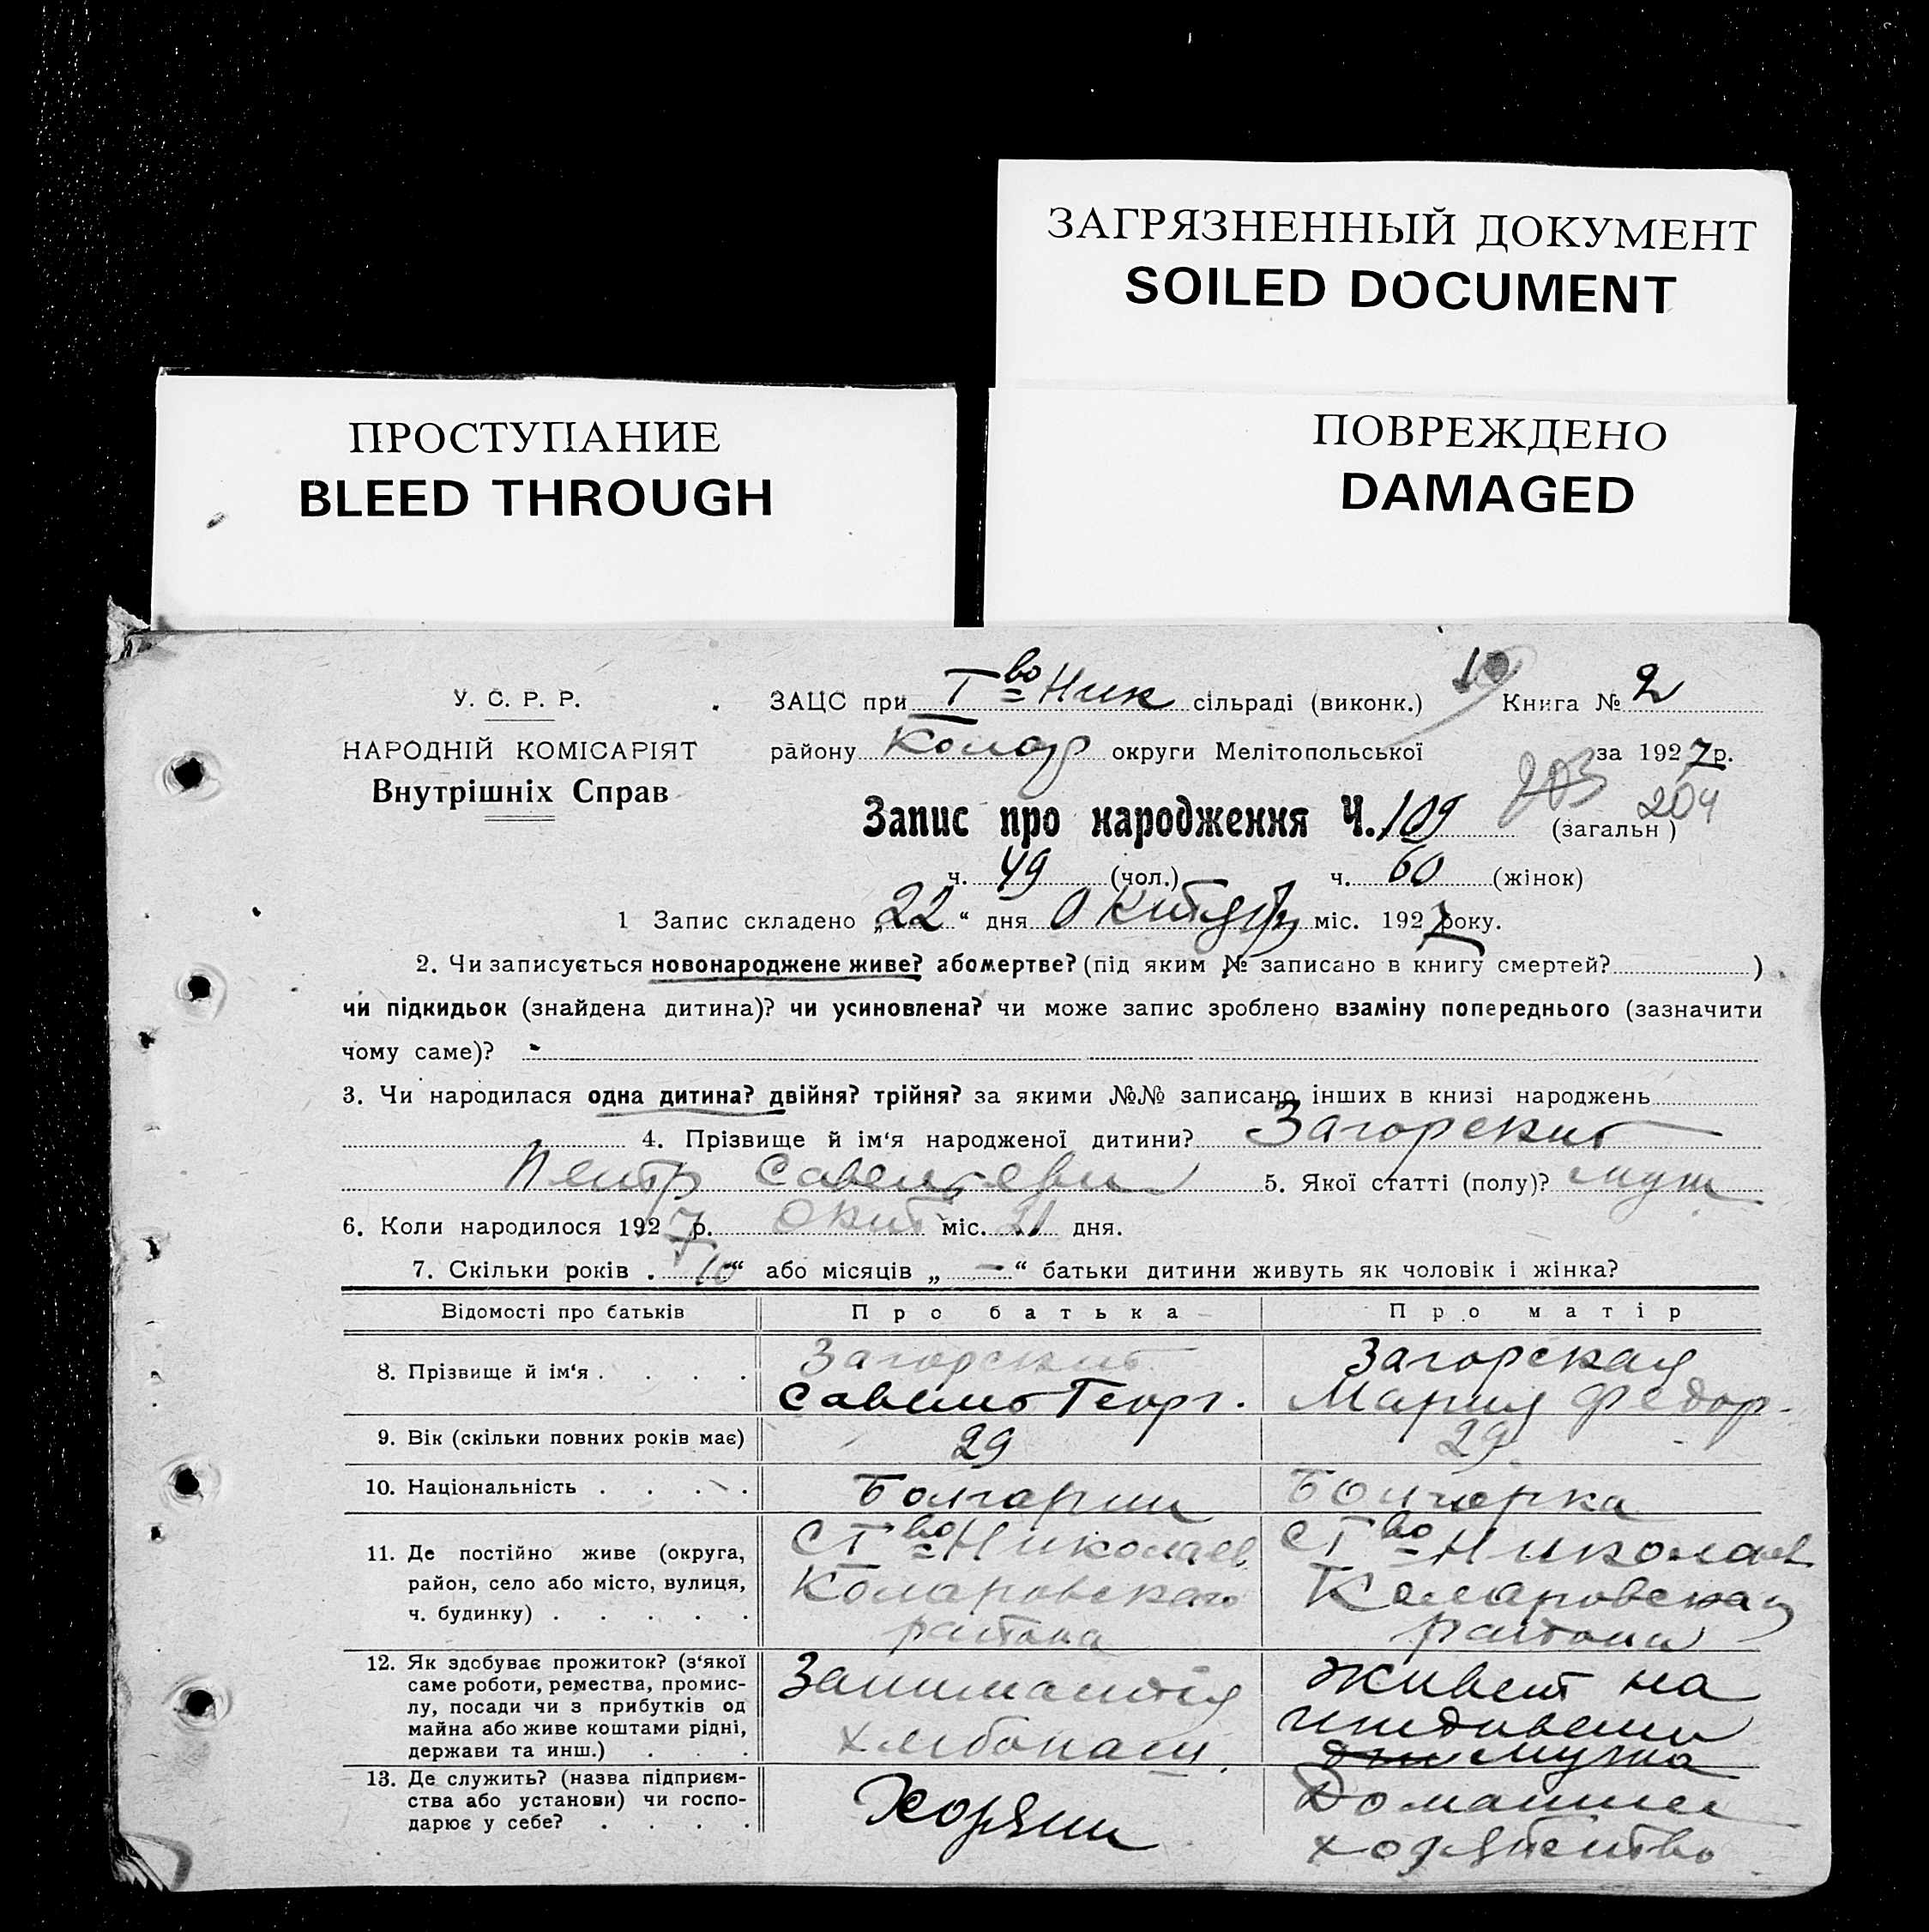 ЗАГРЯЗНЕННЫЙ ДОКУМЕНТ
SOILED DOCUMENT
ПРОСТУПАНИЕ
BLEED THROUGH
ПОВРЕЖДЕНО
DAMAGED
У. С. Р. Р.
НАРОДНІЙ КОМІСАРІЯТ
Внутрішніх Справ
ЗАЦС при Iво Ник сільраді (виконк.) 10 Книга № 2
району Колар округи Мелітопольської за 1927 р.
203
204
Запис про народження Ч. 109 (загальн)
ч. 49 (чол.) ч. 60 (жінок)
1 Запис складено „22“ дня Октября міс. 1927 року.
2. Чи записується новонароджене живе? або мертве? (під яким № записано в книгу смертей? )
чи підкидьок (знайдена дитина)? чи усиновлена? чи може запис зроблено взаміну попереднього (зазначити
чому саме)?
3. Чи народилася одна дитина? двійня? трійня? за якими №№ записано інших в книзі народжень
4. Прізвище й ім‘я народженої дитини? Загорский
Петр Савельеви 5. Якої статті (полу)? муж
6. Коли народилося 1927 р. Окт міс. 21 дня.
7. Скільки років „10“ або місяців „ — “ батьки дитини живуть як чоловік і жінка?
Відомості про батьків Про батька Про матір
8. Прізвище й ім‘я . . . . Загорский Загорская
Савелий Георг. Мария Федор.
9. Вік (скільки повних років має) 29 29
10. Національність . . . . Болгарин Болгарка
11. Де постійно живе (округа, район, село або місто, вулиця, ч. будинку) . . . . .
С Iво Николаев
Коларовского
района
С Iво Николаев
Коларовская
района
12. Як здобуває прожиток? (з‘якої
саме роботи, ремества, промис-
лу, посади чи з прибутків од
майна або живе коштами рідні,
держави та инш.) . . .
Занимается
хлебопаш.
живет на
иждивении
мужа
13. Де служить? (назва підприєм-
ства або установи) чи госпо-
дарює у себе? . . . .
Хозяин
Домашнее
хозяйство